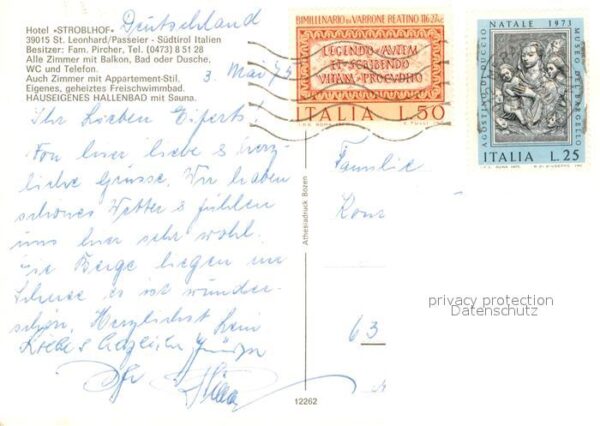 Hotel «STROBLHOF»
39015 St. Leonhard/Passeier - Südtirol Italien
Besitzer: Fam. Pircher, Tel. (0473) 8 51 28
Alle Zimmer mit Balkon, Bad oder Dusche,
WC und Telefon.
Auch Zimmer mit Appartement-Stil.
Eigenes, geheiztes Freischwimmbad.
HAUSEIGENES HALLENBAD mit Sauna.
Deutschland
3. Mai 75
Ihr Lieben Eiferts!
Von hier liebe & herz-
liche Grüsse. Wir haben
schönes Wetter & fühlen
uns hier sehr wohl.
Die Berge liegen im
Schnee es ist wunder-
schön. Herzlichst
Ihr
BIMILLENARIO DI VARRONE REATINO 116-27 a.C.
LEGENDO AUTEM
ET SCRIBENDO
VITAM PROCUDITO
ITALIA L.50
NATALE 1973
AGOSTINO DI DUCCIO
MUSEO DELL'ANGELLO
ITALIA L.25
Familie
Kons
63
Athesiadruck Bozen
12262
privacy protection
Datenschutz